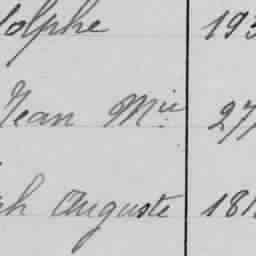 olphe 193
Jean M.ie 27
ph Auguste 181